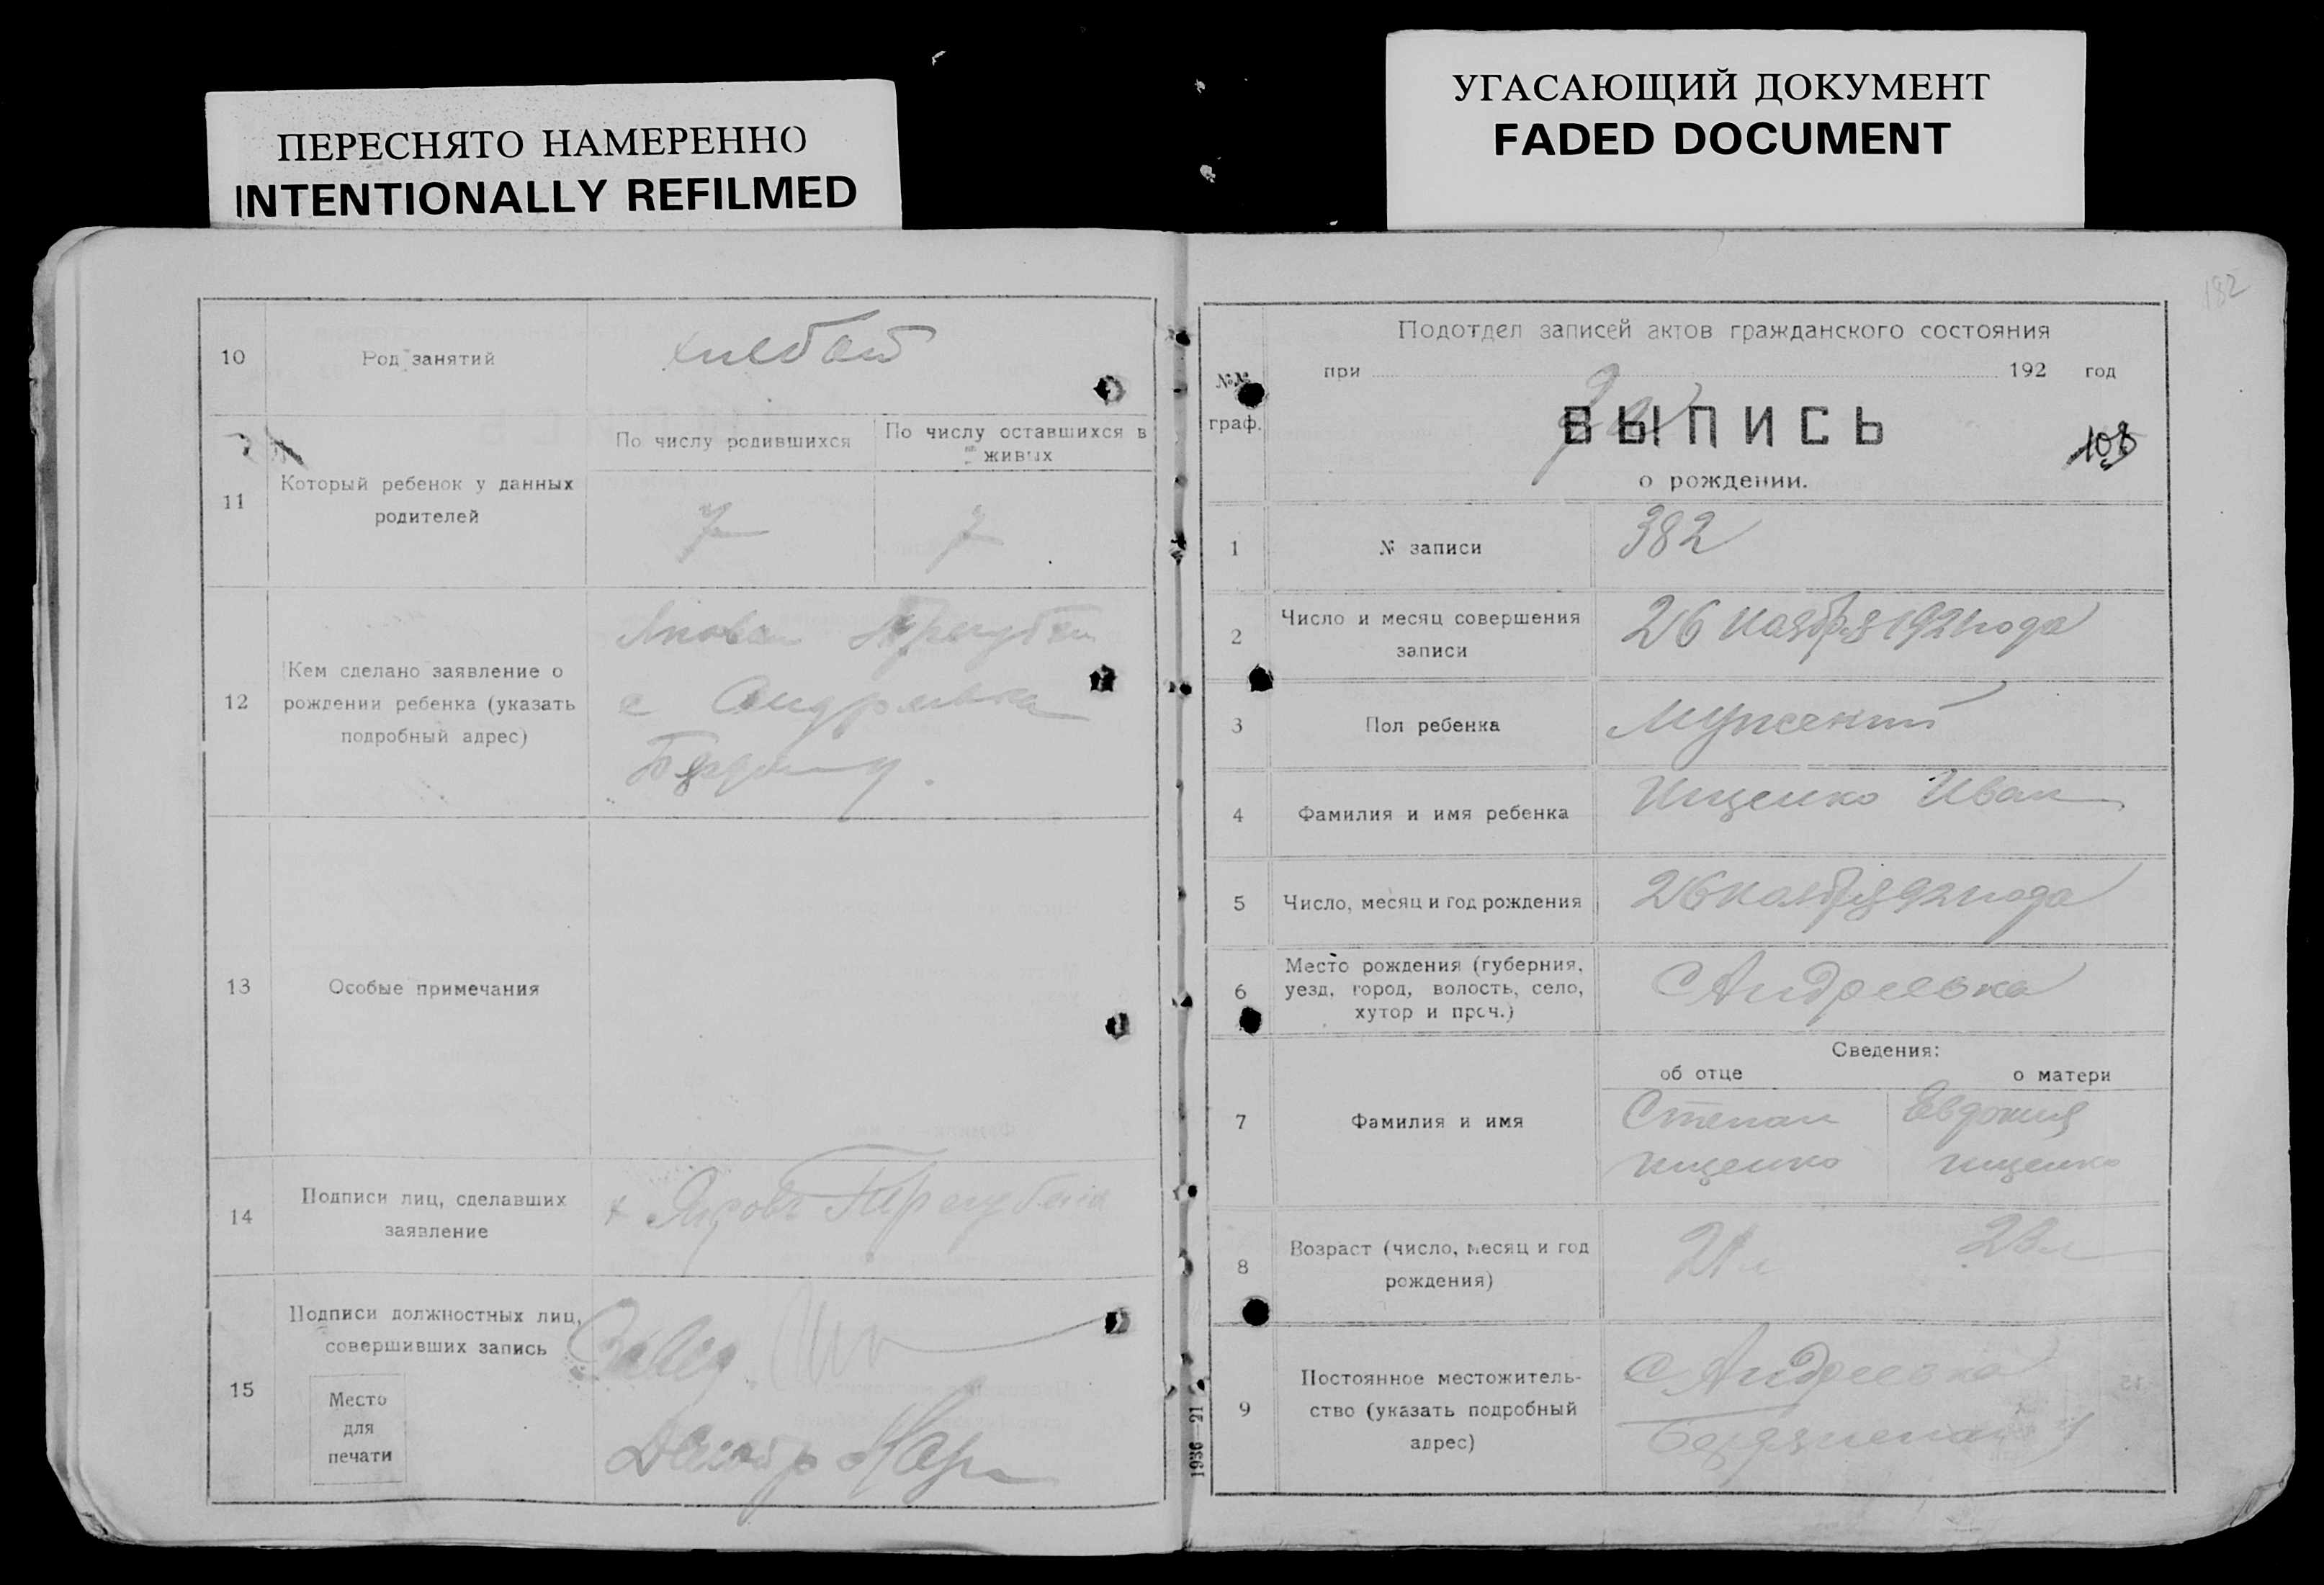 ПЕРЕСНЯТО НАМЕРЕННО
INTENTIONALLY REFILMED
УГАСАЮЩИЙ ДОКУМЕНТ
FADED DOCUMENT
10
Род занятий
11
Который ребенок у данных
родителей
По числу родившихся
По числу оставшихся в
живых
7
7
12
Кем сделано заявление о
рождении ребенка (указать
подробный адрес)
13
Особые примечания
14
Подписи лиц, сделавших
заявление
15
Подписи должностных лиц,
совершивших запись
Место
для
печати
182
№№
граф.
Подотдел записей актов гражданского состояния
при 192 год
ВЫПИСЬ
о рождении.
108
1
№ записи
382
2
Число и месяц совершения
записи
26 ноября 1921 года
3
Пол ребенка
Мужский
4
Фамилия и имя ребенка
Ищенко Иван
5
Число, месяц и год рождения
26 ноября 921 года
6
Место рождения (губерния,
уезд, город, волость, село,
хутор и проч.)
С Андреевка
7
Фамилия и имя
Сведения:
об отце
о матери
Степан
Ищенко
Евдокия
Ищенко
8
Возраст (число, месяц и год
рождения)
9
Постоянное местожитель-
ство (указать подробный
адрес)
С Андреевка
1936—21